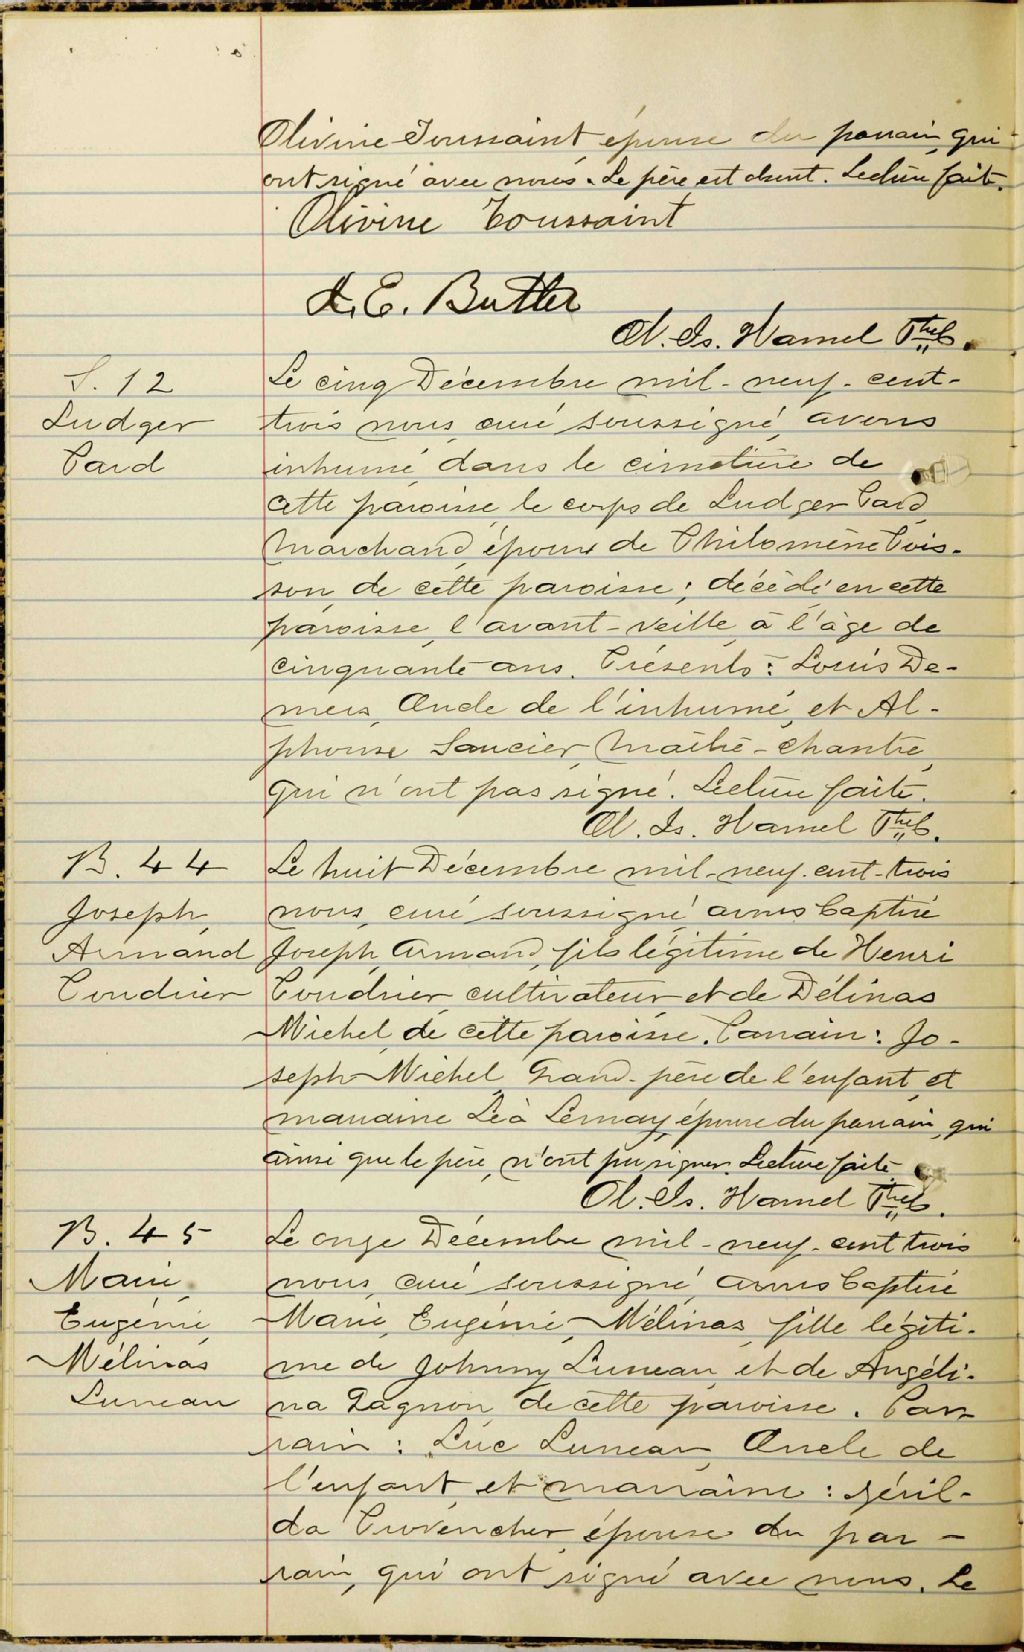 Olivine Toussaint épouse du parrain, qui
ont signé avec nous. Le père est absent. Lecture faite.
Olivine Toussaint
E. Butler
Is. Hamel Ptre.
S. 12
Ludger
Paré
Le cinq Décembre mil-neuf-cent-
trois nous, curé soussigné, avons
inhumé dans le cimetière de
cette paroisse le corps de Ludger Paré
Marchand, époux de Philomène Pois-
son, de cette paroisse; décédé en cette
paroisse, l'avant-veille, à l'âge de
cinquante ans. Présents: Louis De-
mers, Oncle de l'inhumé, et Al-
phonse Saucier, Maître-chantre,
qui n'ont pas signé. Lecture faite.
Is. Hamel Ptre.
B. 44
Joseph,
Armand
Coudrier
Le huit Décembre mil-neuf-cent-trois
nous, curé soussigné, avons baptisé
Joseph, Armand, fils légitime de Henri
Coudrier, cultivateur et de Délinas
Michel, de cette paroisse. Parrain: Jo-
seph Michel, Grand-père de l'enfant, et
marraine Léa Lemay, épouse du parrain, qui
ainsi que le père, n'ont pu signer. Lecture faite.
Is. Hamel Ptre.
B. 45
Marie,
Eugénie,
Mélinas
Luneau
Le onze Décembre mil-neuf-cent trois
nous, curé soussigné, avons baptisé
Marie, Eugénie, Mélinas, fille légiti-
me de Johnny Luneau, et de Angéli-
na Gagnon, de cette paroisse. Par-
rain: Luc Luneau, Oncle de
l'enfant, et marraine:
da Provencher, épouse du par-
rain, qui ont signé avec nous. Le